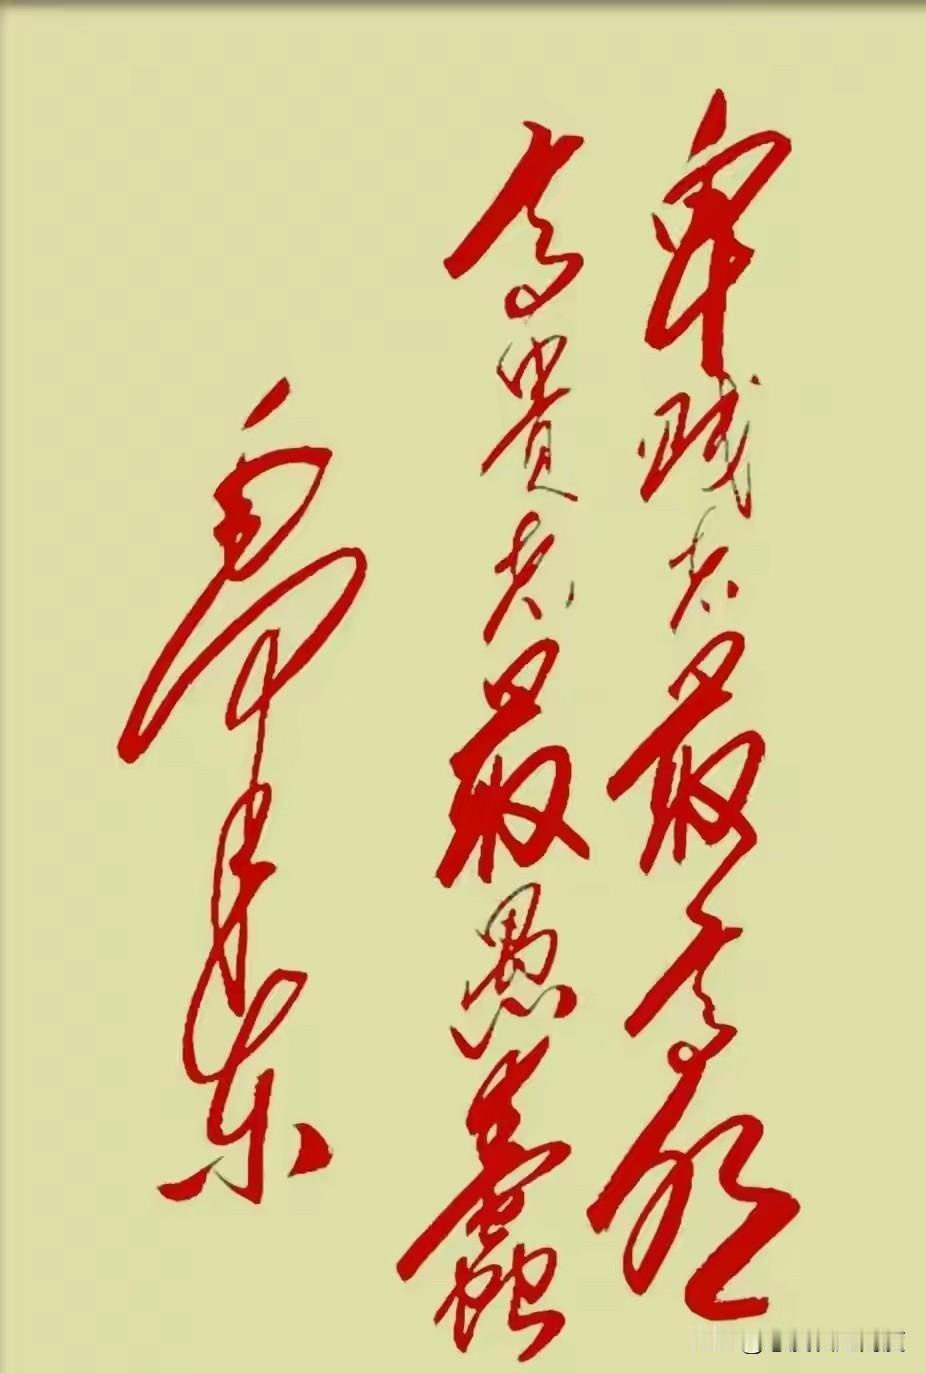 卑賤者最高明
高貴者最愚蠢
毛泽东